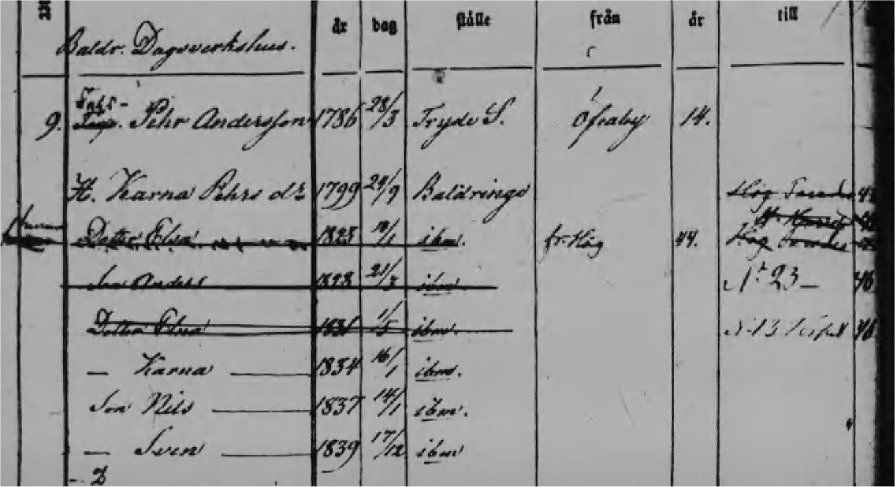 år dag ställe från år till
Baldr. Dagsverkshus.
9. Pehr Andersson 1786 28/3 Tryde S. Öfraby 14.
H. Karna Pehrs dr 1799 29/9 Baldringe Hög
Dotter Elna 1825 /1 ibm. fr. Hög 44. Hög
Son Anders 1828 21/3 ibm. No 23 46
Dotter Elna 1831 1/5 ibm. 48
— Karna 1834 16/1 ibm.
Son Nils 1837 14/1 ibm.
— Sven 1839 17/12 ibm